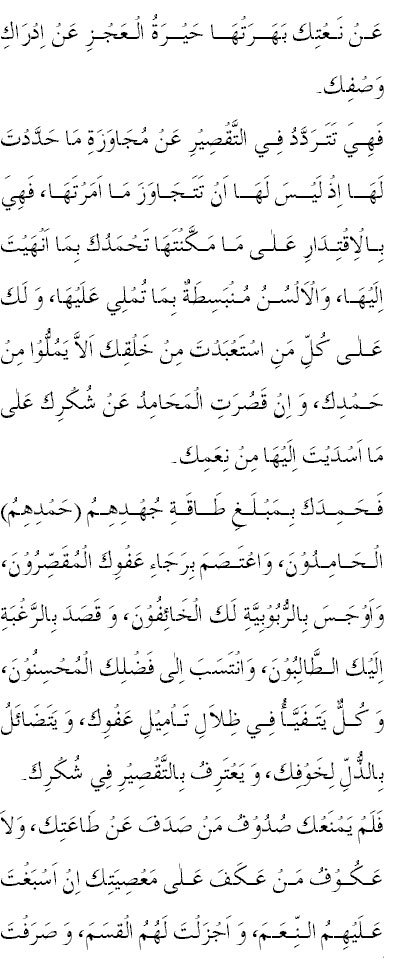 عَنْ نَعْتِكَ بَهَرَتْهَا حَيْرَةُ الْعَجْزِ عَنْ اِدْرَاكِ
وَصْفِكَ.
فَهِيَ تَتَرَدَّدُ فِي التَّقْصِيْرِ عَنْ مُجَاوَزَةِ مَا حَدَّدْتَ
لَهَا اِذْ لَيْسَ لَهَا اَنْ تَتَجَاوَزَ مَا اَمَرْتَهَا، فَهِيَ
بِالْاِقْتِدَارِ عَلٰى مَا مَكَّنْتَهَا تَحْمَدُكَ بِمَا اَنْهَيْتَ
اِلَيْهَا، وَالْاَلْسُنُ مُنْبَسِطَةٌ بِمَا تُمْلِي عَلَيْهَا، وَ لَكَ
عَلٰى كُلِّ مَنِ اسْتَعْبَدْتَ مِنْ خَلْقِكَ اَلاَّ يَمُلُّوْا مِنْ
حَمْدِكَ، وَ اِنْ قَصُرَتِ الْمَحَامِدُ عَنْ شُكْرِكَ عَلٰى
مَا اَسْدَيْتَ اِلَيْهَا مِنْ نِعَمِكَ.
فَحَمِدَكَ بِمَبْلَغِ طَاقَةِ جُهْدِهِمُ (حَمْدِهِمُ)
الْحَامِدُوْنَ، وَاعْتَصَمَ بِرَجَاءِ عَفْوِكَ الْمُقَصِّرُوْنَ،
وَاَوْجَسَ بِالرُّبُوْبِيَّةِ لَكَ الْخَائِفُوْنَ، وَ قَصَدَ بِالرَّغْبَةِ
اِلَيْكَ الطَّالِبُوْنَ، وَانْتَسَبَ اِلٰى فَضْلِكَ الْمُحْسِنُوْنَ،
وَ كُلٌّ يَتَفَيَّأُ فِي ظِلَالِ تَاْمِيْلِ عَفْوِكَ، وَ يَتَضَائَلُ
بِالذُّلِّ لِخَوْفِكَ، وَ يَعْتَرِفُ بِالتَّقْصِيْرِ فِي شُكْرِكَ.
فَلَمْ يَمْنَعْكَ صُدُوْفُ مَنْ صَدَفَ عَنْ طَاعَتِكَ، وَلاَ
عَكُوْفُ مَنْ عَكَفَ عَلٰى مَعْصِيَتِكَ اِنْ اَسْبَغْتَ
عَلَيْهِمُ النِّعَمَ، وَ اَجْزَلْتَ لَهُمُ الْقِسَمَ، وَ صَرَفْتَ